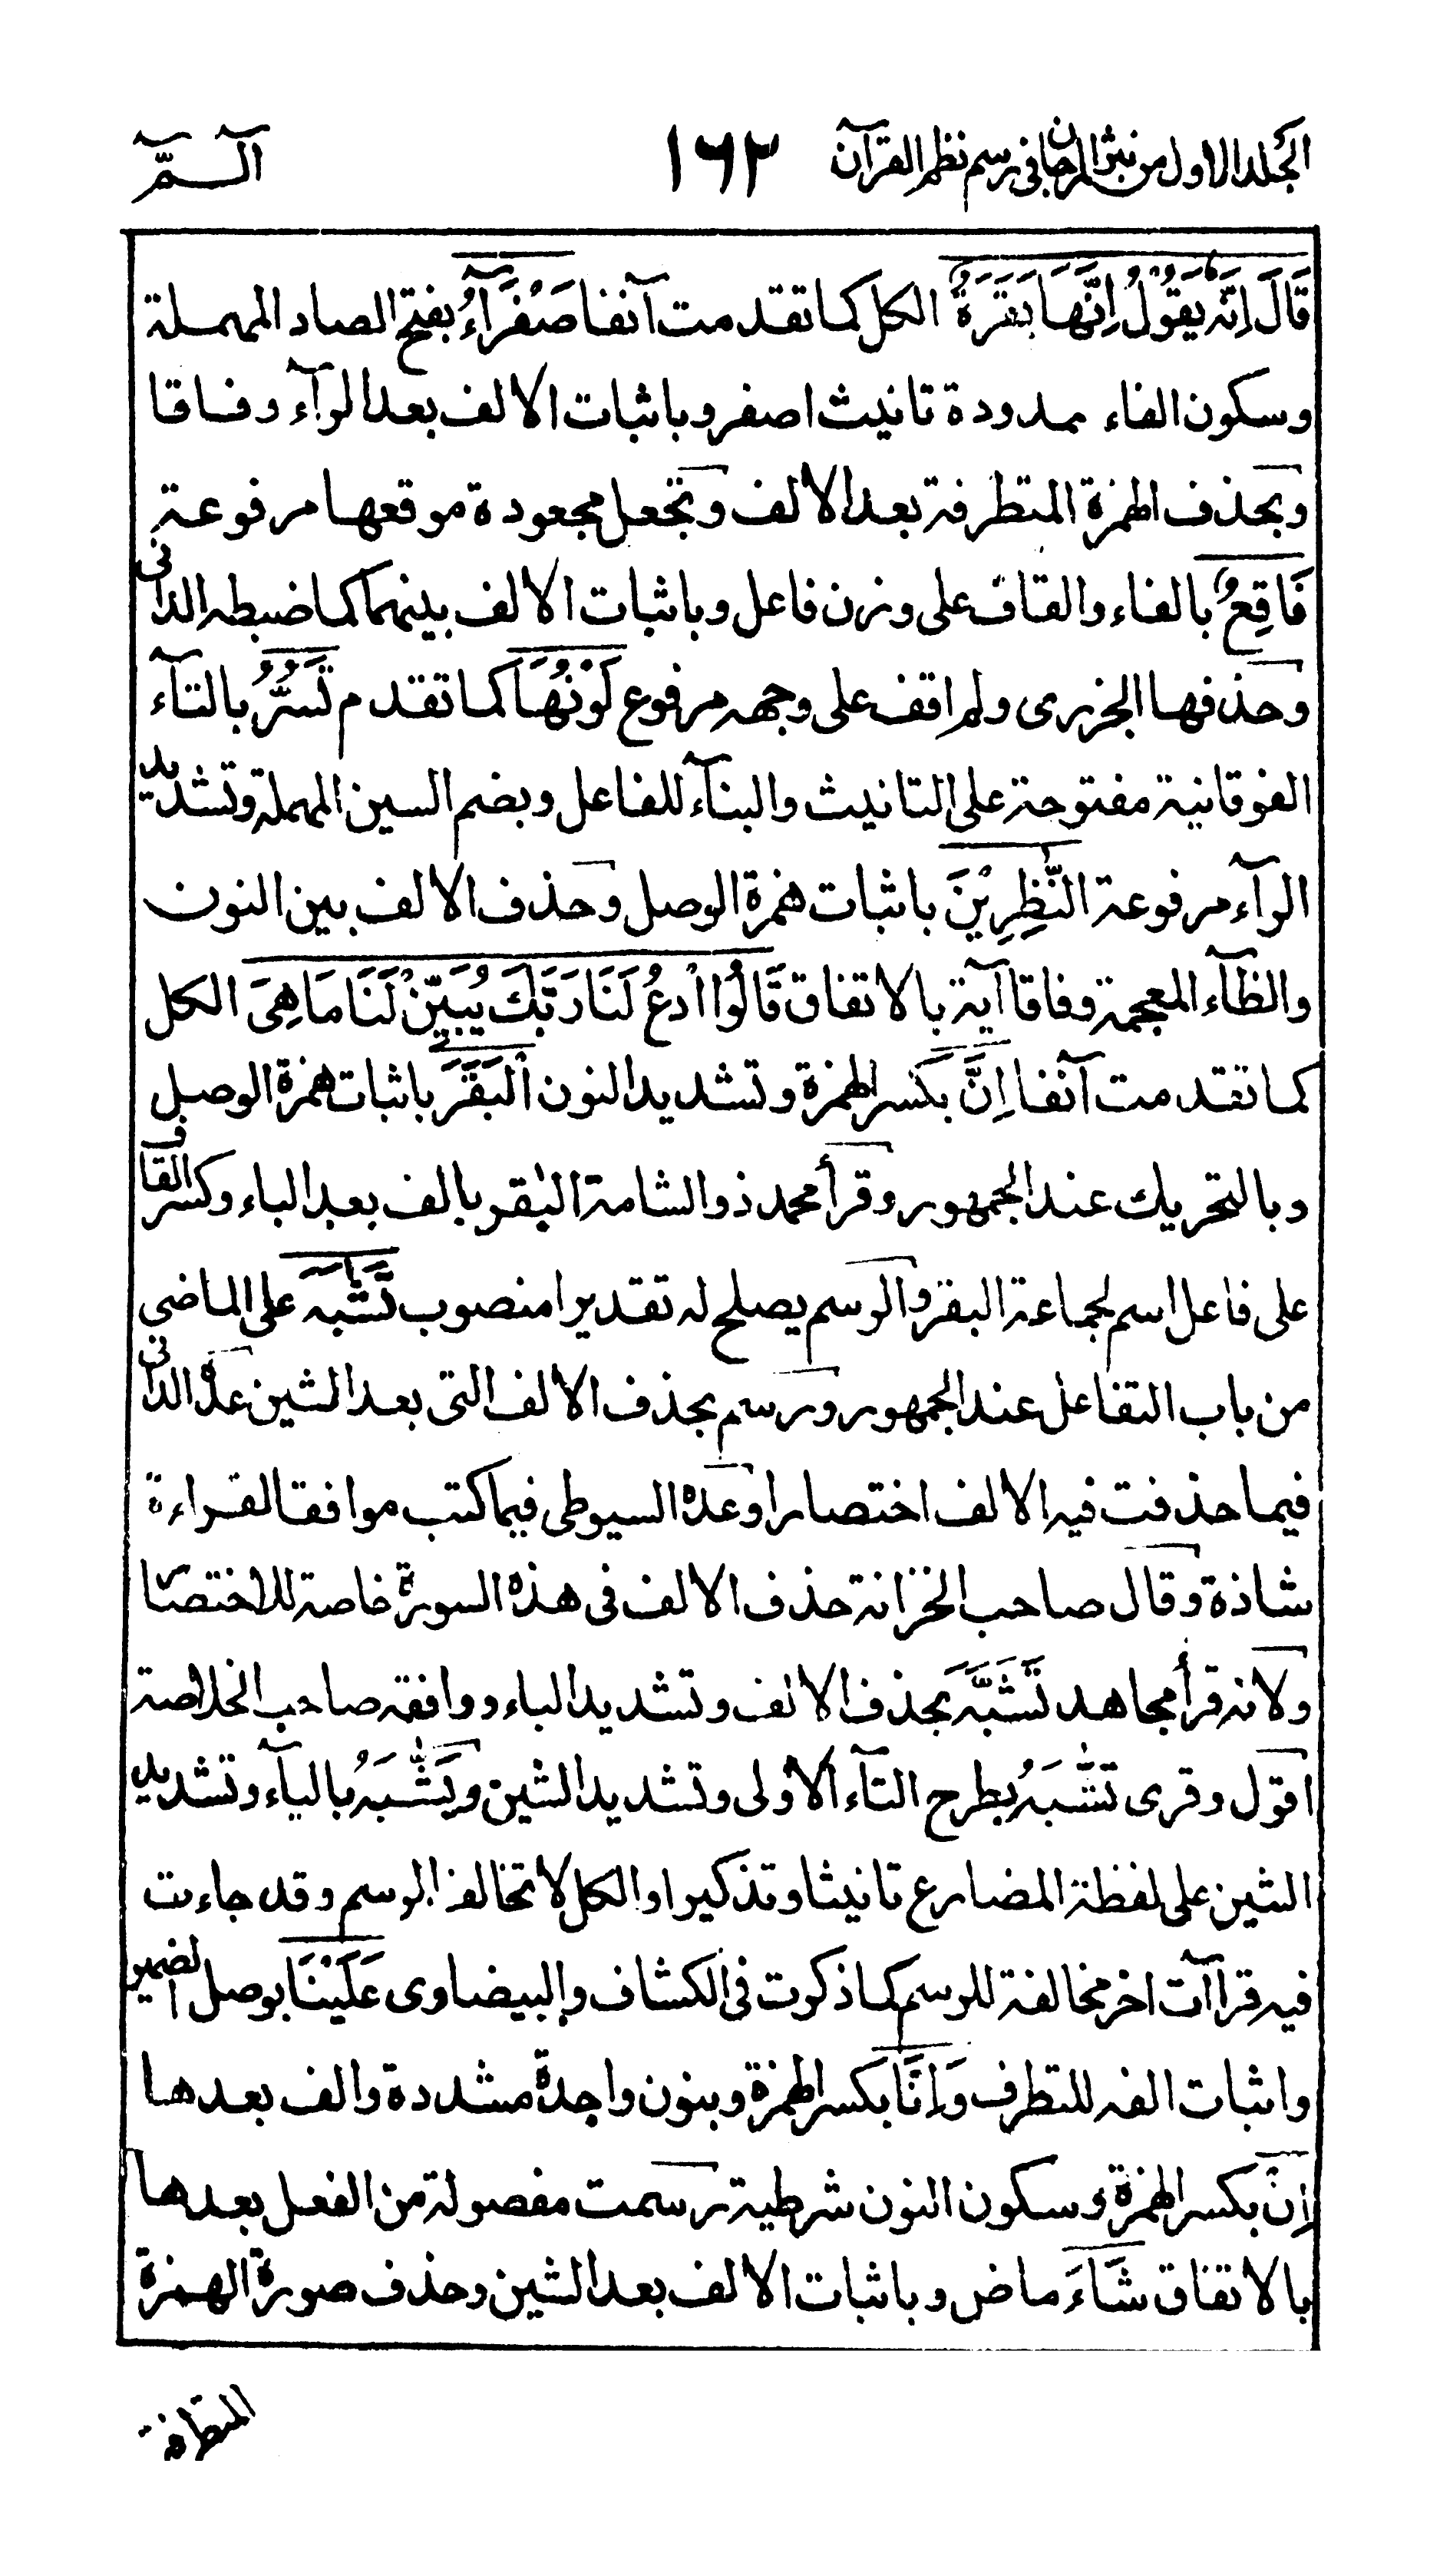 الجلد الاول من نثر المرجان في رسم نظم القرآن ١٦٢ آلـمّٓ
قَالَ اِنَّهٗ يَقُوْلُ اِنَّهَا بَقَرَةٌ الكل كما تقدمت آنفا صَفْرَآءُ بفتح الصاد المهملة
وسكون الفاء ممدودة تانيث اصفر وباثبات الالف بعد الرآء وفاقا
وبحذف الهمزة المتطرفة بعد الالف وتجعل مجعودة موقعها مرفوعة
فَاقِعٌ بالفاء والقاف على وزن فاعل وباثبات الالف بينهما كما ضبطه الدانى
وحذفها الجزرى ولم اقف على وجهه مرفوع لَوْنُهَا كما تقدم تَسُرُّ بالتآء
الفوقانية مفتوحة على التانيث والبنآء للفاعل وبضم السين المهملة وتشديد
الرآء مرفوعة النّٰظِرِيْنَ باثبات همزة الوصل وحذف الالف بين النون
والظآء المعجمة وفاقا آية بالاتفاق قَالُوا ادْعُ لَنَا رَبَّكَ يُبَيِّنْ لَنَا مَا هِىَ الكل
كما تقدمت آنفا اِنَّ بكسر الهمزة وتشديد النون الْبَقَرَ باثبات همزة الوصل
وبالتحريك عند الجمهور وقرأ محمد ذو الشامة البٰقر بالف بعد الباء وكسر القاف
على فاعل اسم لجماعة البقر والرسم يصلح له تقديرا منصوب تَشٰبَهَ على الماضى
من باب التفاعل عند الجمهور ورسم بحذف الالف التى بعد الشين عدّه الدانى
فيما حذفت فيه الالف اختصارا وعدّه السيوطى فيما كتب موافقا لقراءة
شاذة وقال صاحب الخزانة حذف الالف فى هذه السورة خاصة للاختصا
ولانه قرأ مجاهد تَشَبَّهَ بحذف الالف وتشديد الباء ووافقه صاحب الخلاصة
اقول وقرى تَشّٰبَهُ بطرح التآء الاولى وتشديد الشين ويَشّٰبَهُ باليآء وتشديد
الشين على لفظة المضارع تانيثا وتذكيرا والكل لا تخالف الرسم وقد جاءت
فيه قراآت اخر مخالفة للرسم كما ذكرت فى الكشاف والبيضاوى عَلَيْنَا بوصل الضمير
واثبات الفه للتطرف وَاِنَّا بكسر الهمزة وبنون واحدة مشددة والف بعدها
اِنْ بكسر الهمزة وسكون النون شرطية رسمت مفصولة من الفعل بعدها
بالاتفاق شَآءَ ماض وباثبات الالف بعد الشين وحذف صورة الهمزة
المتطرفة